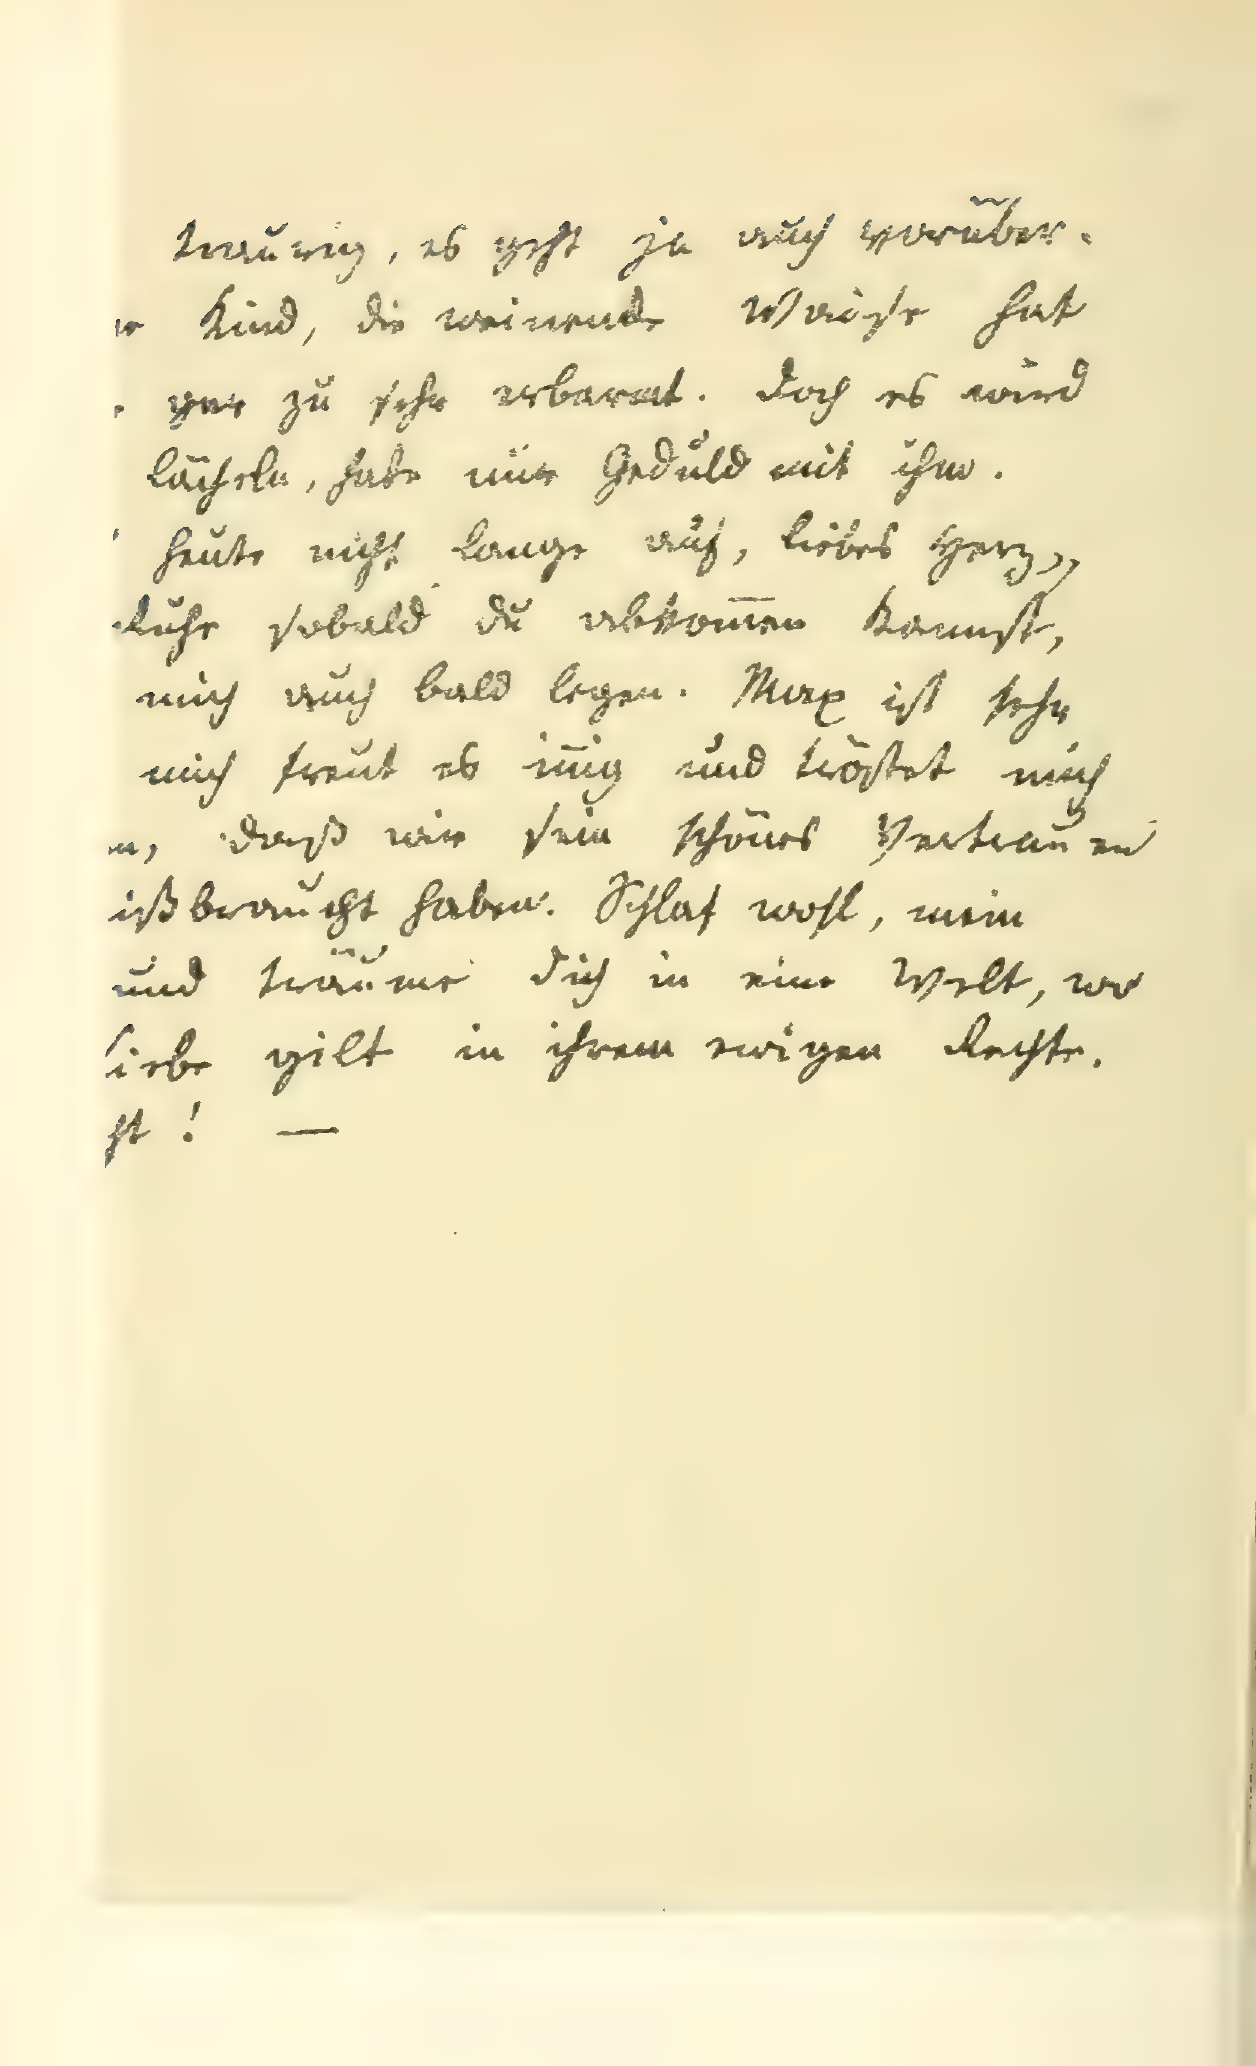 traurig, es geht ja auch vorüber.
Kind, die weinende Waise hat
gar zu sehr erbarmt. Doch es wird
lächeln, habe nur Geduld mit ihm.
heute nicht lange auf, liebes Herz,
Ruhe sobald du abkom̅en kannst,
mich auch bald legen. Max ist sehr
mich freut es in̅ig und tröstet mich
n, daß wir sein schönes Vertrauen
ißbraucht haben. Schlaf wohl, mein
und träume dich in eine Welt, wo
iebe gilt in ihrem ewigen Rechte.
ht! —